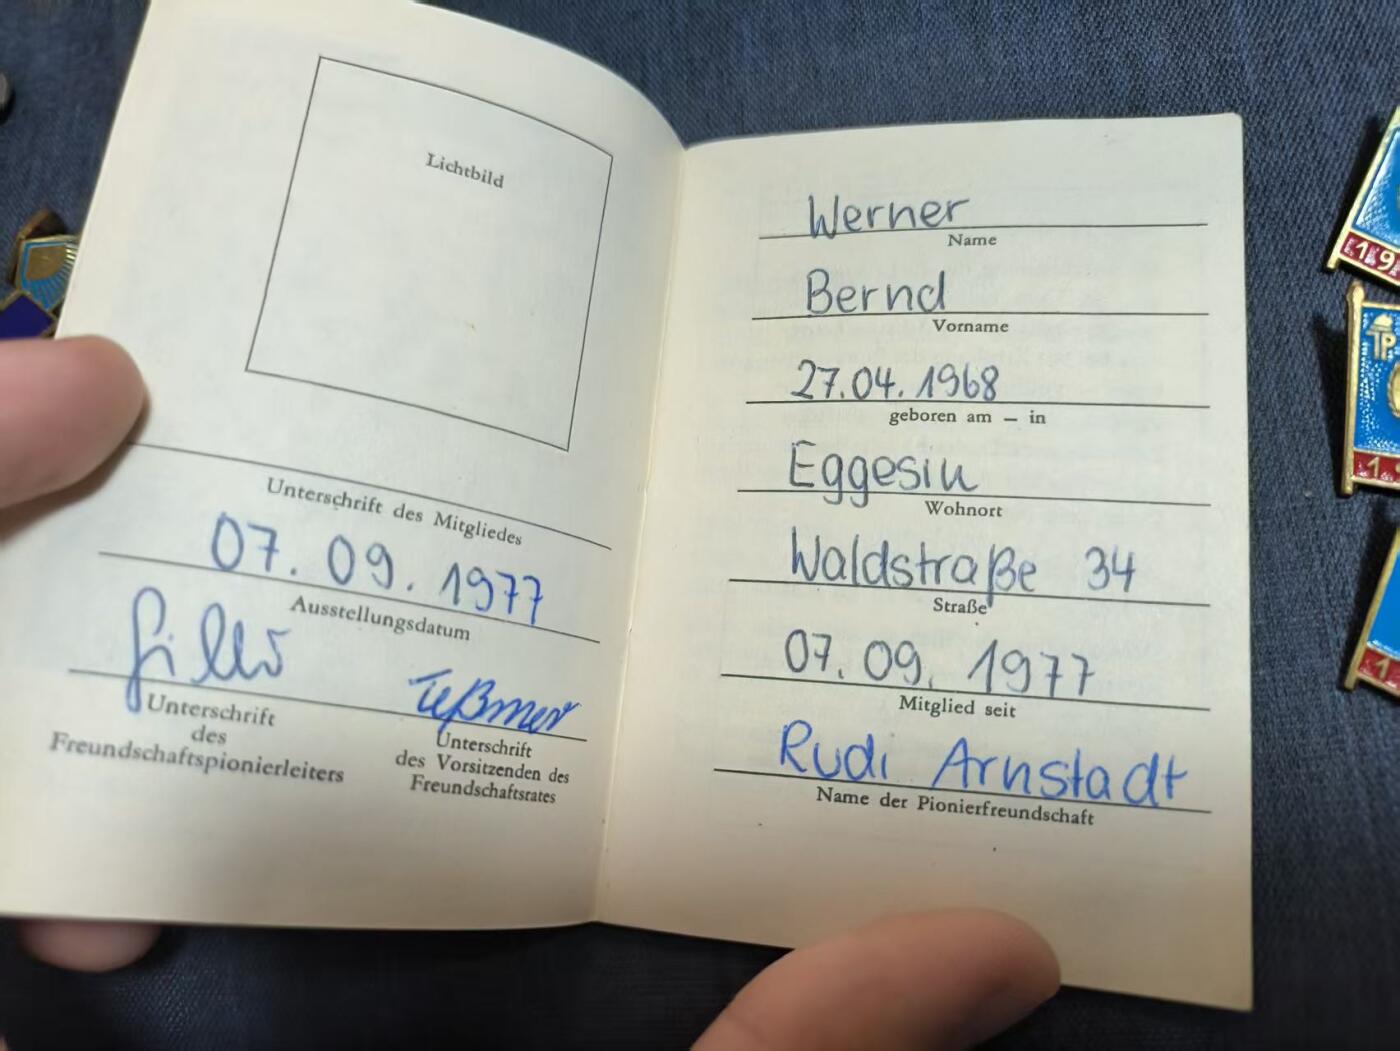 Lichtbild
Unterschrift des Mitgliedes
07. 09. 1977
Ausstellungsdatum
Teßmer
Unterschrift
des
Freundschaftspionierleiters
Unterschrift
des Vorsitzenden des
Freundschaftsrates
Werner
Name
Bernd
Vorname
27.04.1968
geboren am – in
Eggesin
Wohnort
Waldstraße 34
Straße
07.09. 1977
Mitglied seit
Rudi Arnstadt
Name der Pionierfreundschaft
19
TP
1
1